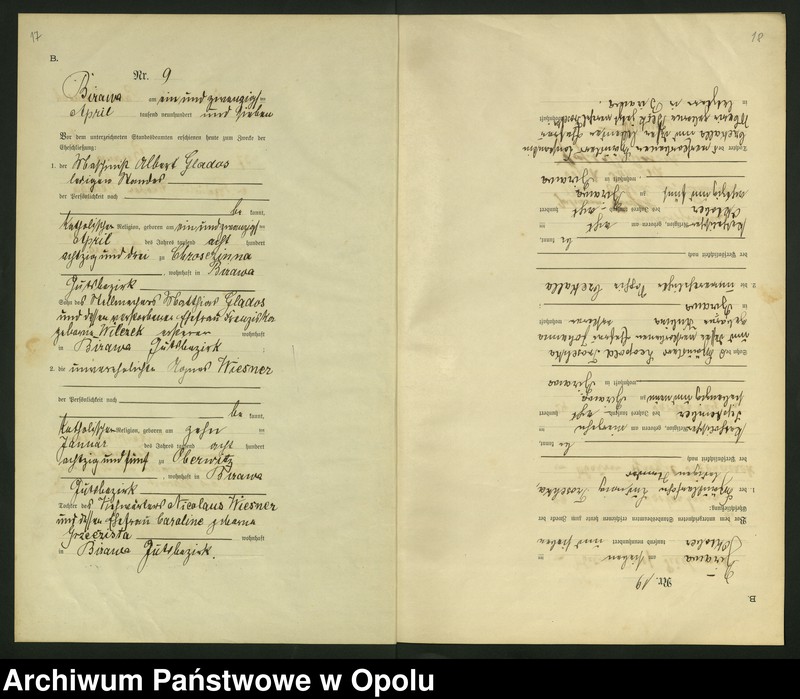 17
B.
Nr. 9
Birawa am ein und zwanzigsten
April tausend neunhundert und sieben
Vor dem unterzeichneten Standesbeamten erschienen heute zum Zwecke der
Eheschließung:
1. der Maschinist Albert Glados
ledigen Standes
der Persönlichkeit nach
be kannt,
katholischer Religion, geboren am ein und zwanzigsten
April des Jahres tausend acht hundert
achtzig und drei zu Chroschinna
, wohnhaft in Birawa
Gutsbezirk
Sohn des Stellmachers Matthias Glados
und dessen verstorbenen Ehefrau Franziska
geborne Wilczek ersterer wohnhaft
in Birawa Gutsbezirk
2. die unverehelichte Agnes Wiesner
der Persönlichkeit nach
be kannt,
katholischer Religion, geboren am zehnten
Januar des Jahres tausend acht hundert
achtzig und fünf zu Oberwitz
, wohnhaft in Birawa
Gutsbezirk
Tochter des Nicolaus Wiesner
und dessen Ehefrau Caroline geborne
Grzeczista wohnhaft
in Birawa Gutsbezirk.
18
B.
Nr. 19
Birawa am sieben ten
Oktober tausend neunhundert und sieben
Vor dem unterzeichneten Standesbeamten erschienen heute zum Zwecke der
Eheschließung:
1. der Häuslersohn
ledigen Standes
der Persönlichkeit nach
be kannt,
katholischer Religion, geboren am
September des Jahres tausend acht hundert
siebenzig und neun zu Birawa
, wohnhaft in Birawa
Sohn des Häuslers Leopold
und dessen verstorbenen Ehefrau Johanna
geborne ersterer wohnhaft
in Birawa
2. die unverehelichte Sophie Czekalla
der Persönlichkeit nach
be kannt,
katholischer Religion, geboren am acht ten
Oktober des Jahres tausend acht hundert
achtzig und fünf zu Birawa
, wohnhaft in Birawa
Tochter des verstorbenen Häusler
Czekalla und
wohnhaft
in letztere in Birawa.
Archiwum Państwowe w Opolu